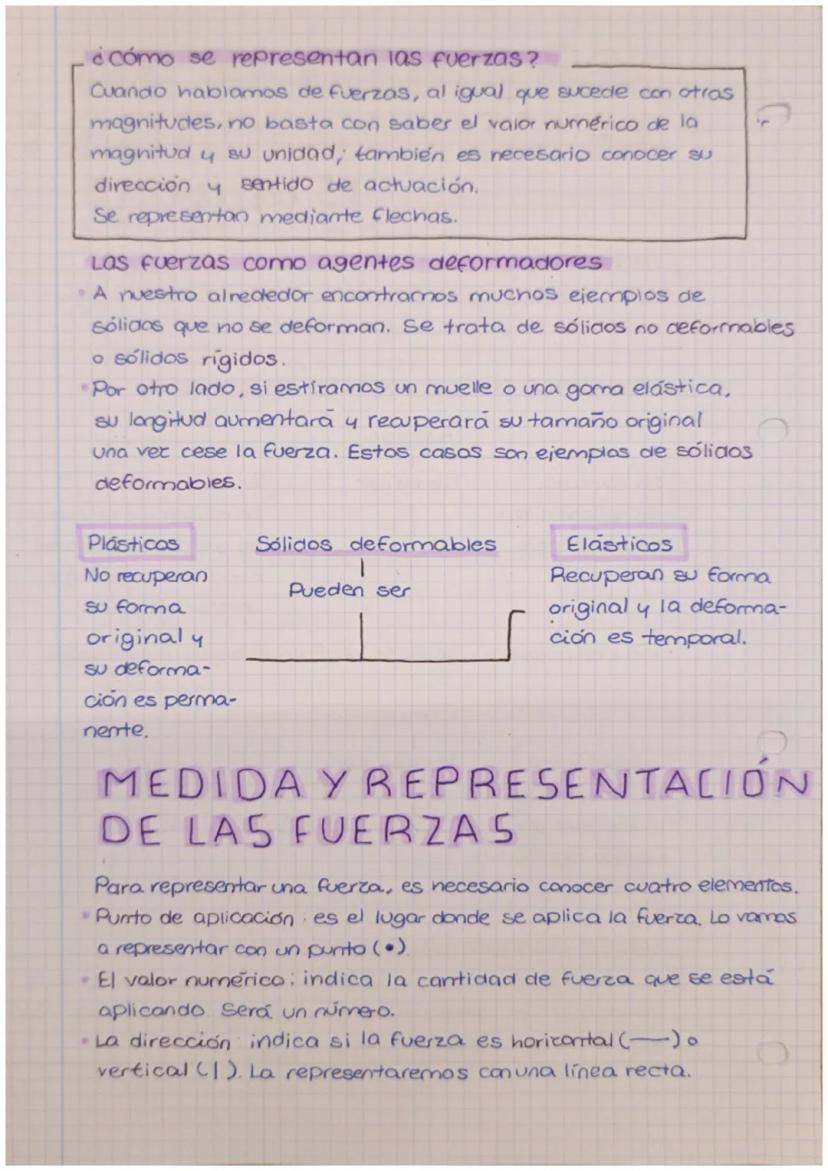 ¿Cómo se representan las fuerzas?
Cuando hablamos de fuerzas, al igual que sucede con otras
magnitudes, no basta con saber el valor numérico de la
magnitud y su unidad; también es necesario conocer su
dirección y sentido de actuación.
Se representan mediante flechas.
Las fuerzas como agentes deformadores
• A nuestro alrededor encontramos muchos ejemplos de
sólidos que no se deforman. Se trata de sólidos no deformables
o sólidos rígidos.
• Por otro lado, si estiramos un muelle o una goma elástica,
su longitud aumentará y recuperará su tamaño original
una vez cese la fuerza. Estos casos son ejemplos de sólidos
deformables.
Plásticos
No recuperan
su forma
original y
su deforma-
ción es perma-
nente.
Sólidos deformables
Pueden ser
Elásticos
Recuperan su forma
original y la deforma-
ción es temporal.
MEDIDA Y REPRESENTACIÓN
DE LAS FUERZAS
Para representar una fuerza, es necesario conocer cuatro elementos.
• Punto de aplicación: es el lugar donde se aplica la fuerza. Lo vamos
a representar con un punto (•)
• El valor numérico: indica la cantidad de fuerza que se está
aplicando Será un número.
• La dirección: indica si la fuerza es horizontal (—) o
vertical (|). La representaremos con una línea recta.